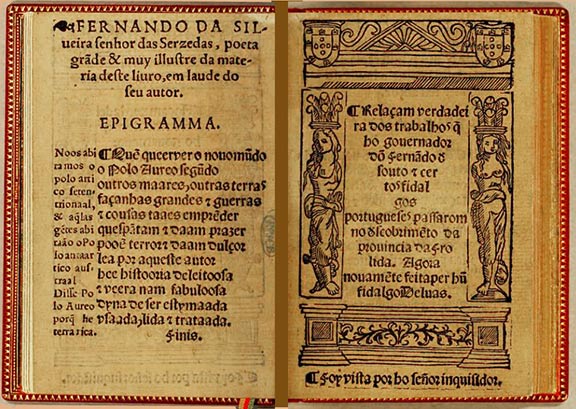 FERNANDO DA SIL-
ueira senhor das Serzedas, poeta
grãde & muy illustre da mate-
ria deste liuro, em laude do
seu autor.
EPIGRAMMA.
Noos abi
tamos o
polo arti
co seten-
trional,
& aq̃las
gẽtes abi
tão o Po
lo antaar
tico aus-
traal
Disse Po
lo Aureo
porq̃ he
terra rica.
Quẽ quer ver o nouo mũdo
o Polo Aureo segũdo
outros maares, outras terras
façanhas grandes & guerras
& cousas taaes emprẽder
que spãtam & daam prazer
poõe terror & daam dulçor
lea por aqueste autor
hee histooria deleitoosa
& veera nam fabuloosa
dyna de ser estymaada
vsaada, lida & trataada.
Finis.
Relaçam verdadei
ra dos trabalhos q̃
ho gouernador
dõ Fernãdo d̃
souto & cer
tos fidal
gos
portugueses passarom
no d̃scobrimẽto da
prouincia da Fro
lida. Agora
nouamẽte feita per hũ
fidalgo Deluas.
Foy vista por ho señor inquisidor.